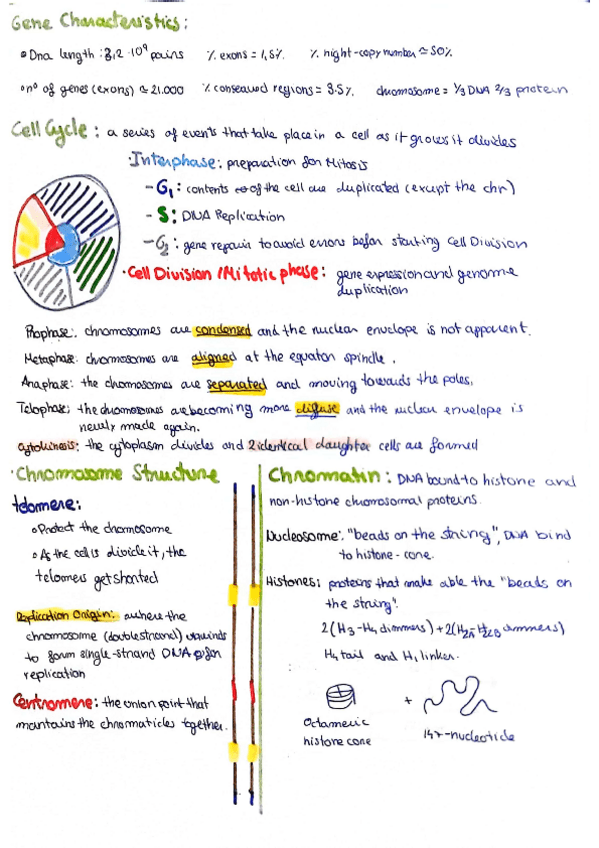 Gene Characteristics:
• Dna length : 3,2 · 10⁹ pairs   % exons = 1,5%   % night-copy number ≃ 50%
• nº of genes (exons) ≃ 21.000   % conseaued regions = 3.5%   chromosome = 1/3 DNA 2/3 protein
Cell Cycle : a series of events that take place in a cell as it grows it divides
· Interphase: preparation for Mitosis
- G₁ : contents of the cell are duplicated (except the chr)
- S : DNA Replication
- G₂ : gene repairs to avoid errors befor starting Cell Division
· Cell Division / Mitotic phase : gene expression and genome
duplication
Prophase: chromosomes are condensed and the nuclear envelope is not apparent.
Metaphase: chromosomes are aligned at the equator spindle.
Anaphase: the chromosomes are separated and moving towards the poles.
Telophase: the chromosomes are becoming more difuse and the nuclear envelope is
newly made again.
Cytokinesis: the cytoplasm divides and 2 identical daughter cells are formed
· Chromosome Structure
telomere:
• Protect the chromosome
• As the cell is divide it, the
telomers get shorted
Replication Origin: where the
chromosome (double strand) unwinds
to form single-strand DNA for
replication
Centromere: the union point that
mantains the chromaticles together.
Chromatin : DNA bound to histone and
non-histone chromosomal proteins.
Nucleosome: "beads on the string", DNA bind
to histone-core.
Histones: proteins that make able the "beads on
the string".
2(H3-H4 dimmers) + 2(H2A-H2B dimmers)
H4 tail and H1 linker.
+
Octameric
histone core
147-nucleotide